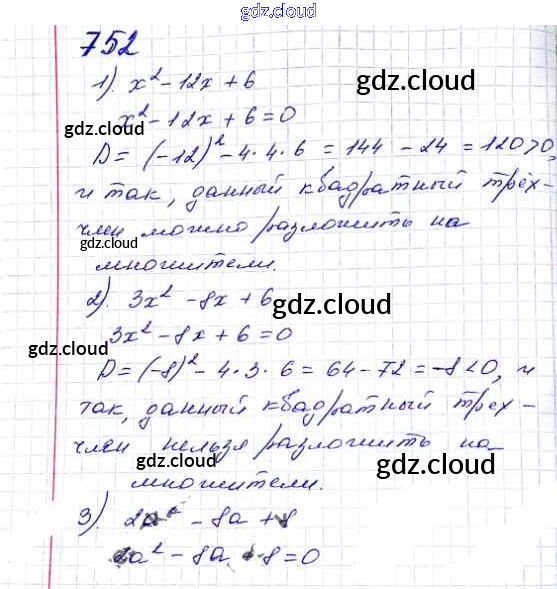 gdz.cloud
752
gdz.cloud
1). x² - 12x + 6
gdz.cloud
x² - 12x + 6 = 0
gdz.cloud
D = (-12)² - 4·4·6 = 144 - 24 = 120 > 0,
и так, данный квадратный трёх-
член можно разложить на
gdz.cloud
множители.
2). 3x² - 8x + 6
gdz.cloud
3x² - 8x + 6 = 0
gdz.cloud
D = (-8)² - 4·3·6 = 64 - 72 = -8 < 0, и
так, данный квадратный трех-
член нельзя разложить на
gdz.cloud
gdz.cloud
множители.
3). 2a² - 8a + 8
2a² - 8a + 8 = 0